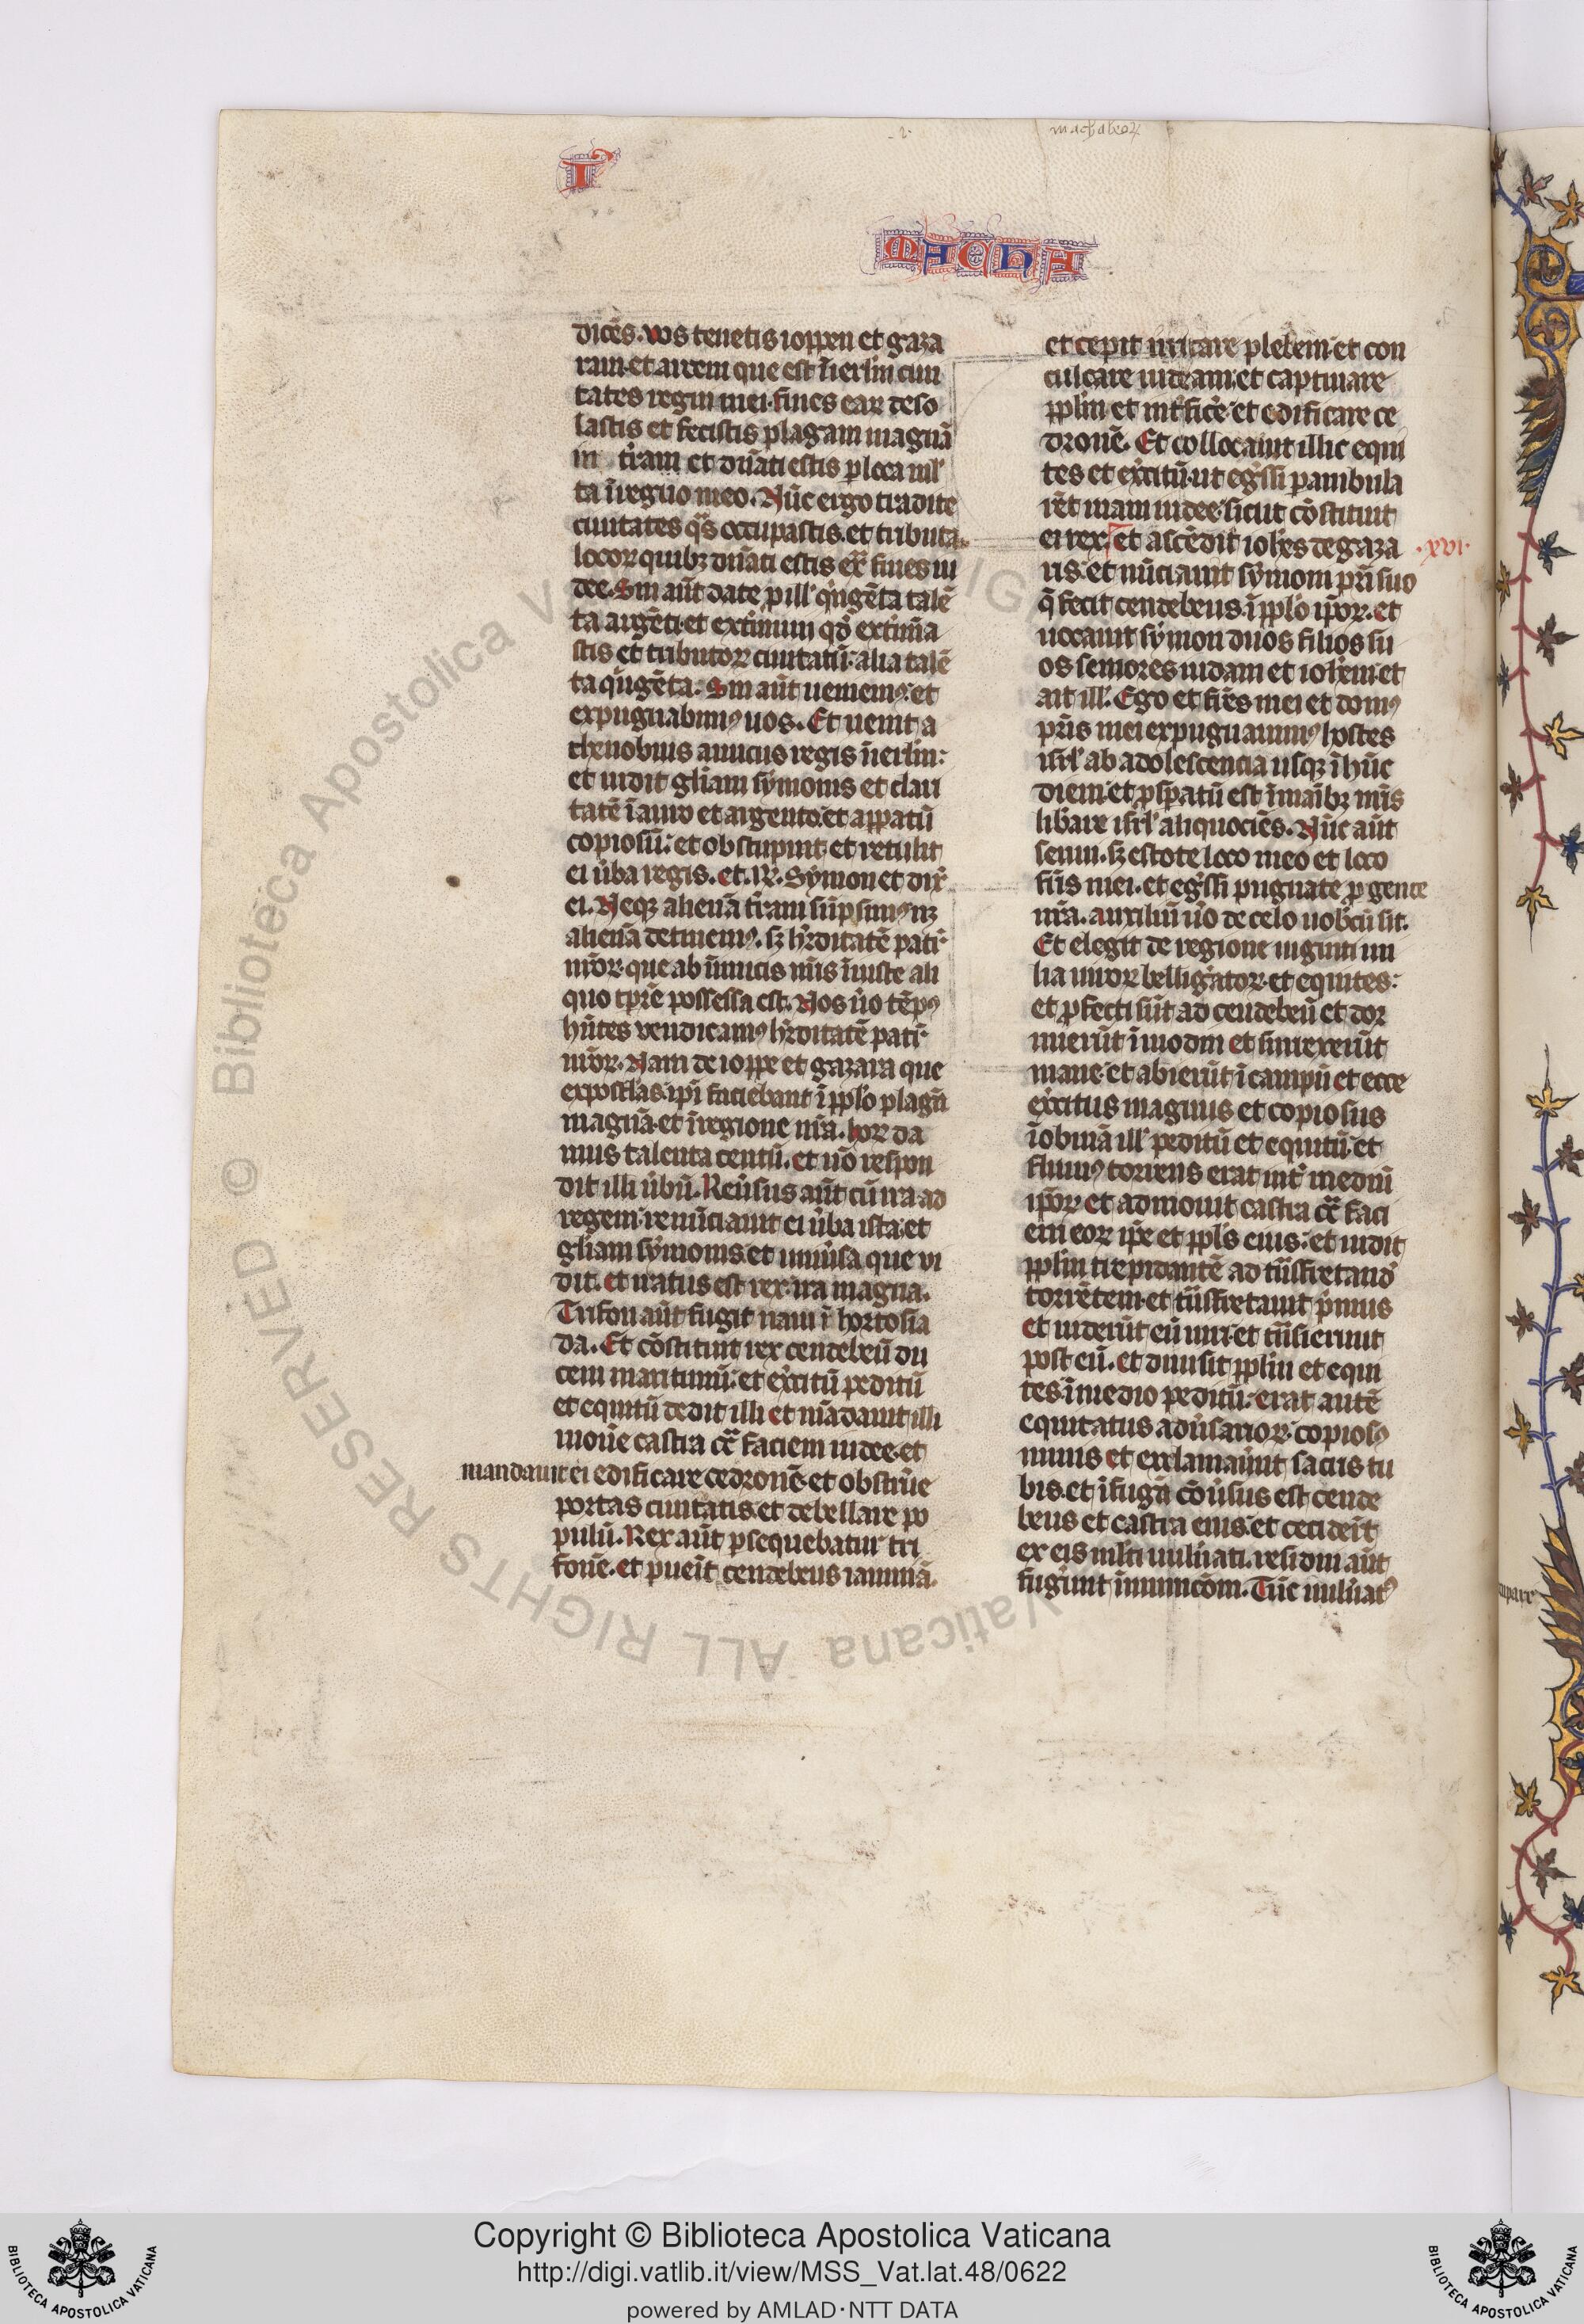 machabeoꝝ
I
MACHA
dicēs. Vos tenetis ioppen et gaza
ram. et arcem que est ī ierl̄m ciui
tates regni mei. fines eaꝝ deso
lastis et fecistis plagam magnā
in tr̄am et dn̄ati estis ꝑ loca ml̓
ta ī regno meo. Nūc ergo tradite
ciuitates qͣs occupastis. et tributa
locoꝝ quibꝫ dn̄ati estis ex̄ fines iu
dee. Sin aūt date ꝓ ill̓ qͥngēta talē
ta argēti. et extiminii qd̓ extimīa
stis et tributoꝝ ciuitatū. alia talē
ta qͥngēta. Sin aūt ueniemꝰ. et
expugnabimꝰ uos. Et uenit a
thenobius amicus regis ī ierl̄m:
et uidit gl̄iam symonis et clari
tatē ī auro et argento. et apparatū
copiosū. et obstupuit et retulit
ei ūba regis. et. R̄. Symon et dix̄
ei. Neqꝫ alienā tr̄am sūpsimꝰ nꝫ
alienā detinemꝰ. sꝫ hr̄ditatē patꝝ
nr̄oꝝ. que ab īimicis nr̄is īiuste ali
quo tp̄re possessa est. Nos ūo tēpꝰ
hn̄tes vendicamꝰ hr̄ditatē patꝝ
nr̄oꝝ. Nam de ioppe et gazara que
expostl̓as. ip̄i faciebant ī ppl̓o plagā
magnā. et ī regione nr̄a. hoꝝ da
mus talenta centū. et nō respon
dit illi ūbū. Reūsus aūt cū ira ad
regem. renūciauit ei ūba ista. et
gl̄iam symonis. et uniūsa que vi
dit. et iratus est rex ira magna.
Trifon aūt fugit naui ī hortosia
da. Et cōstituit rex cendebeū du
cem maritimū. et ex̓citū peditū
et equitū dedit illi et mādauit illi
mouēe castra cͣ faciem iudee. et
mandauit ei edificare cedronē. et obstrūe
portas ciuitatis. et debellare po
pulū. Rex aūt ꝑsequebatur tri
fonē. et ꝑuēit cendebeus iamniā.
et cepit irritare plebem. et con
culcare iudeam. et captiuare
ppl̓m et int̓fic̓e. et edificare ce
dronē. Et collocauit illic equi
tes et ex̓citū. ut eg̓ssi ꝑambula
rēt uiam iudee. sicut cōstituit
ei rex. Et ascēdit ioh̄es de gaza
.xvi.
ris. et nūciauit symoni pr̄i suo
q̄ fecit cendebeus. ī ppl̓o ip̄oꝝ. et
uocauit symon duos filios su
os seniores iudam et ioh̄em. et
ait ill̓. Ego et fr̄es mei et domꝰ
pr̄is mei expugnauimꝰ hostes
isrl̓ ab adolescencia usqꝫ ī hūc
diem. et ꝓsꝑatū est ī maībꝫ nr̄is
lib̓are isrl̓ aliquociēs. Nūc aūt
senui. sꝫ estote loco meo et loco
fr̄is mei. et eg̓ssi pugnate ꝓ gente
nr̄a. auxiliū ūo de celo uobcū sit.
Et elegit de regione uiginti mi
lia uiroꝝ belligatoꝝ. et equites:
et ꝓfecti sūt ad cendebeū et dor
mierūt ī modin et surrexerūt
mane. et abierūt ī campū et ecce
ex̓citus magnus et copiosus
ī obuiā ill̓ peditū et equitū. et
fluuiꝰ torrens erat int̓ mediū
ip̄oꝝ et admouit castra cͣ faci
em eoꝝ ip̄e et ppl̓s eius. et uidit
ppl̓m trepidantē ad tn̄sfretand̓
torrētem. et tn̄sfretauit p̓mus
et uiderūt eū uiri. et tn̄sierunt
post eū. et diuisit ppl̓m et equi
tes. ī medio peditū. erat autē
equitatus aduīsarioꝝ. copiosꝰ
nimis et exclamaūunt sacris tu
bis. et ī fugā cōūsus est cende
beus et castra eius. et cecideīt
ex eis ml̓ti uulnīati. residui aūt
fugīunt ī municōm. Tūc uulnīatꝰ
Copyright © Biblioteca Apostolica Vaticana
http://digi.vatlib.it/view/MSS_Vat.lat.48/0622
powered by AMLAD·NTT DATA
Biblioteca Apostolica Vaticana ALL RIGHTS RESERVED ©
BIBLIOTECA APOSTOLICA VATICANA
BIBLIOTECA APOSTOLICA VATICANA